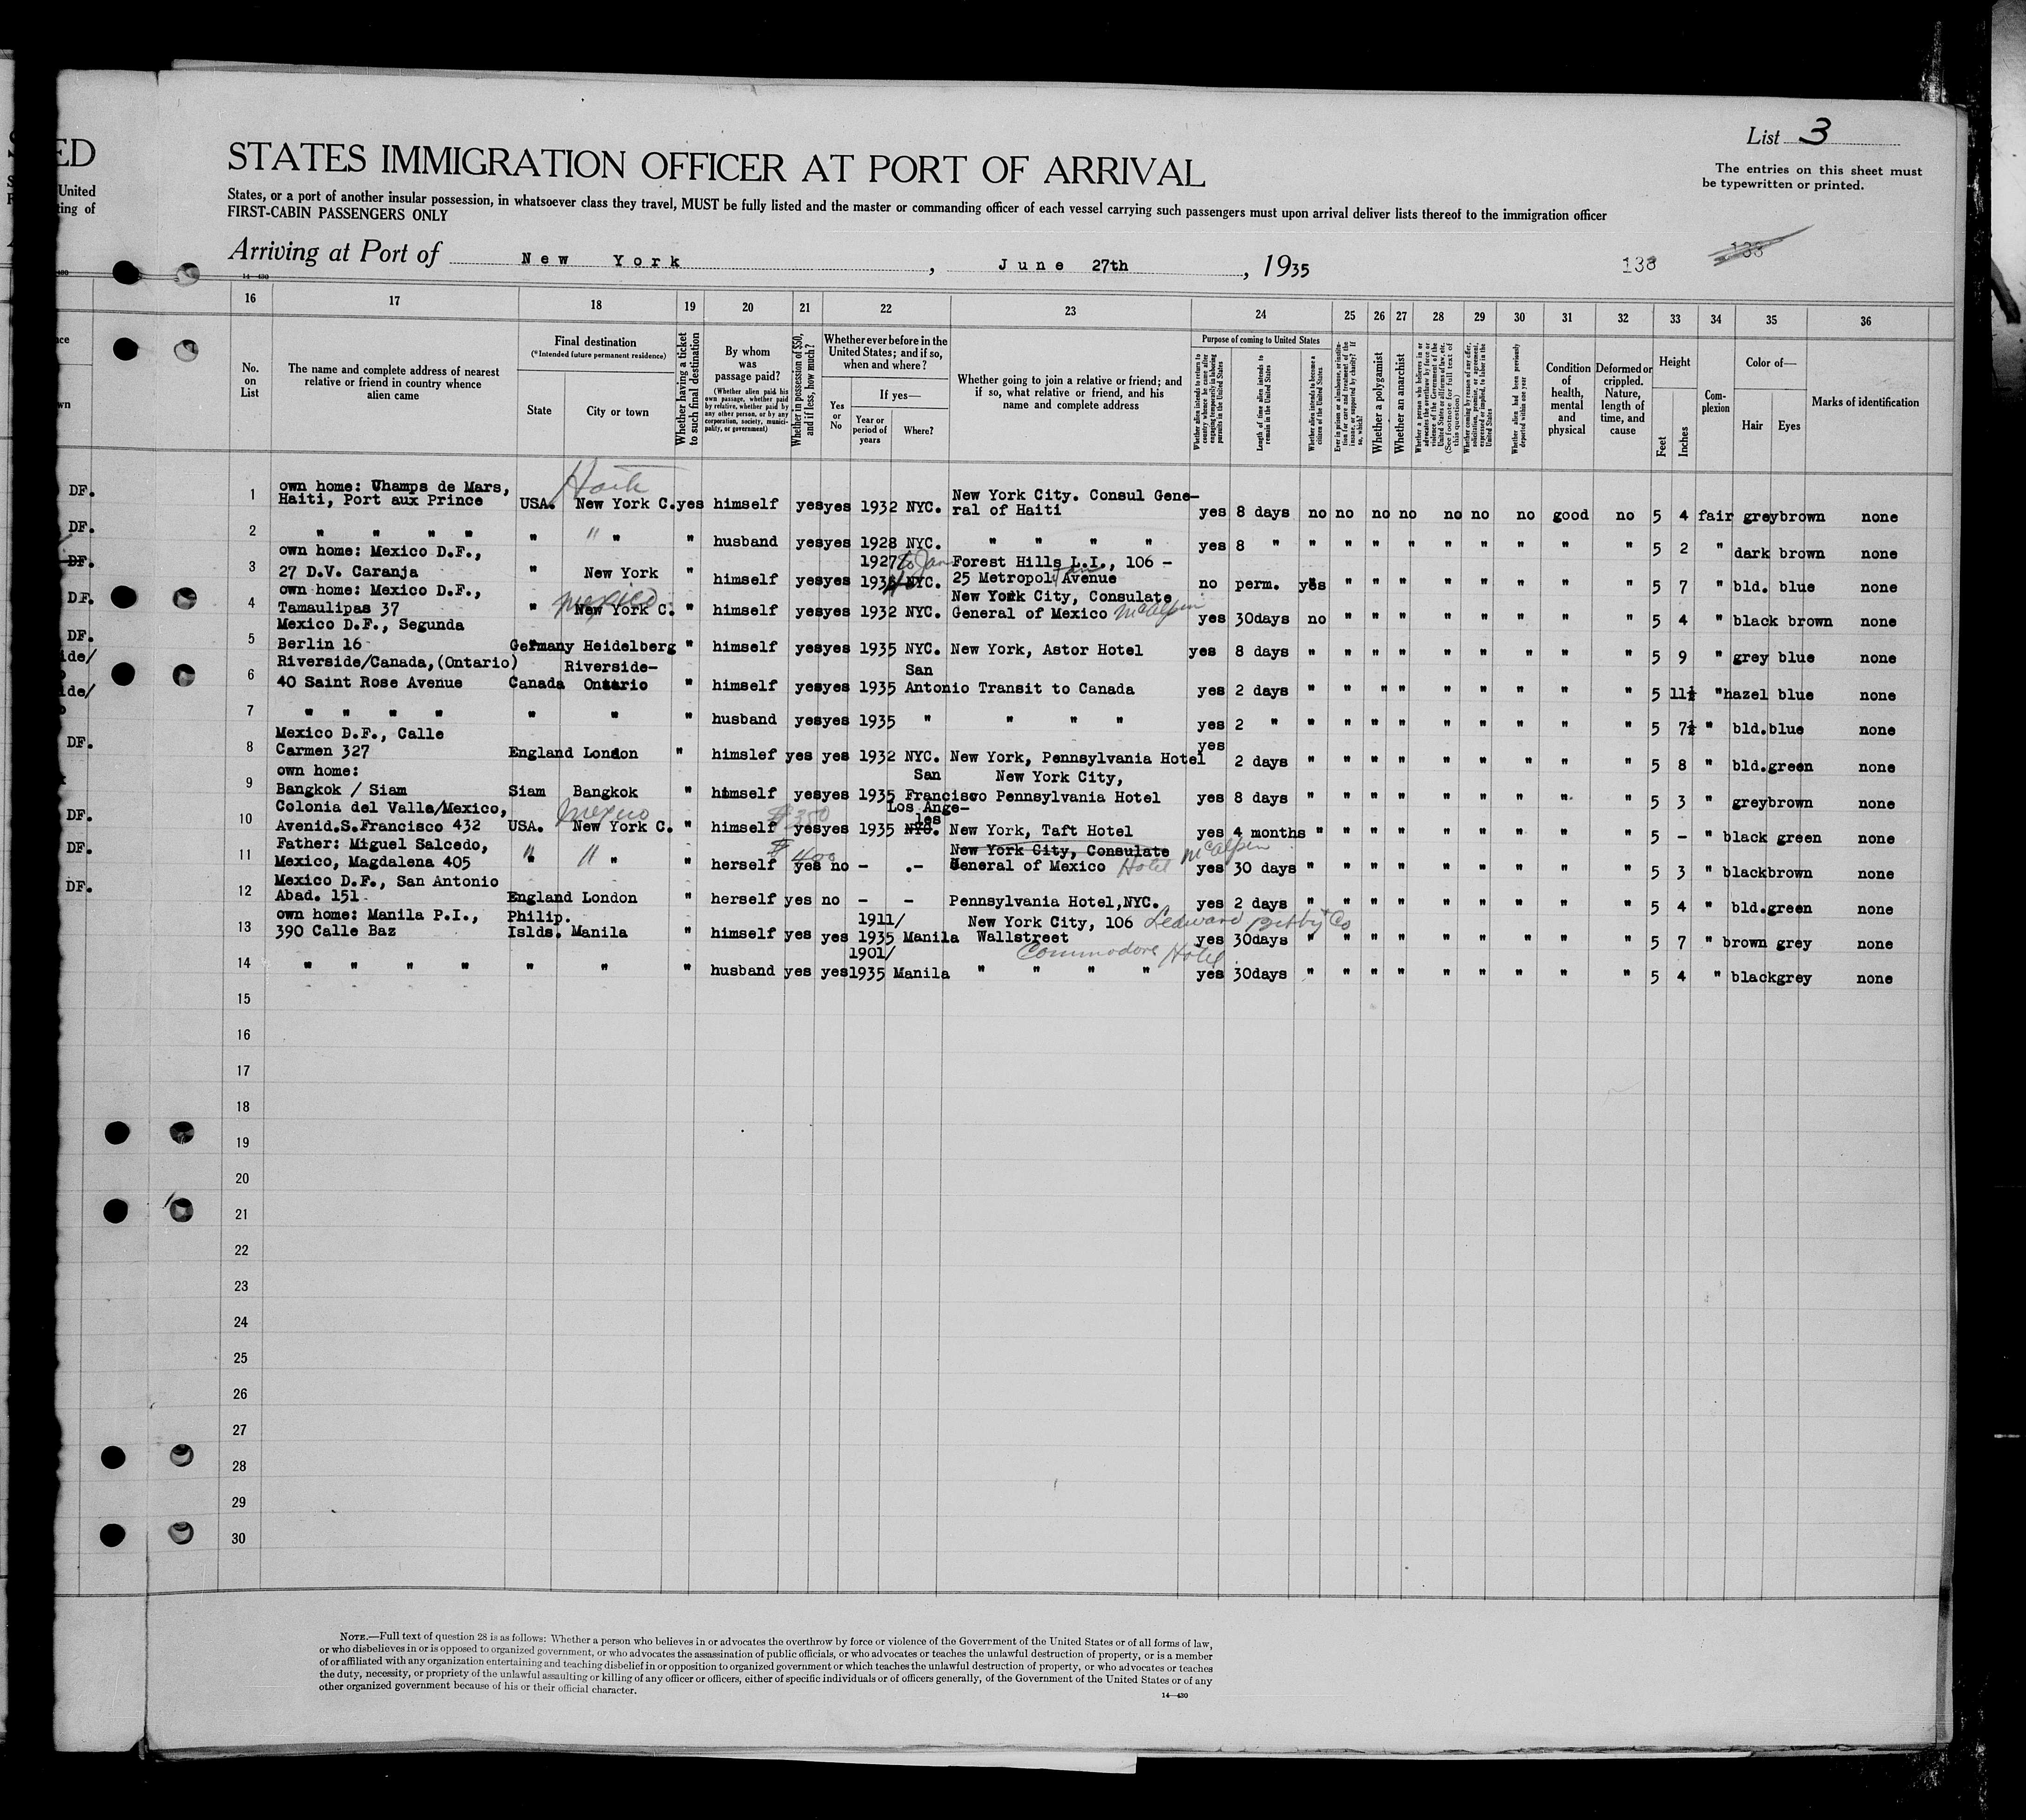 List 3
ED
STATES IMMIGRATION OFFICER AT PORT OF ARRIVAL
The entries on this sheet must
be typewritten or printed.
United
ting of
States, or a port of another insular possession, in whatsoever class they travel, MUST be fully listed and the master or commanding officer of each vessel carrying such passengers must upon arrival deliver lists thereof to the immigration officer
FIRST-CABIN PASSENGERS ONLY
Arriving at Port of New York, June 27th, 1935
138 138
14—430
16 17 18 19 20 21 22 23 24 25 26 27 28 29 30 31 32 33 34 35 36
No. on List
The name and complete address of nearest relative or friend in country whence alien came
Final destination
(*Intended future permanent residence)
State
City or town
Whether having a ticket to such final destination
By whom was passage paid?
(Whether alien paid his own passage, whether paid by relative, whether paid by any other person, or by any corporation, society, municipality, or government)
Whether in possession of $50, and if less, how much?
Whether ever before in the United States; and if so, when and where?
Yes or No
If yes—
Year or period of years
Where?
Whether going to join a relative or friend; and if so, what relative or friend, and his name and complete address
Purpose of coming to United States
Whether alien intends to return to country whence he came after engaging temporarily in laboring pursuits in the United States
Length of time alien intends to remain in the United States
Whether alien intends to become a citizen of the United States
Ever in prison or almshouse, or institution for care and treatment of the insane, or supported by charity? If so, which?
Whether a polygamist
Whether an anarchist
Whether a person who believes in or advocates the overthrow by force or violence of the Government of the United States or all forms of law, etc. (See footnote for full text of this question)
Whether coming by reason of any offer, solicitation, promise, or agreement, expressed or implied, to labor in the United States
Whether alien had been previously deported within one year
Condition of health, mental and physical
Deformed or crippled. Nature, length of time, and cause
Height
Feet
Inches
Complexion
Color of—
Hair
Eyes
Marks of identification
Haiti
DF. 1 own home: Champs de Mars, Haiti, Port aux Prince USA. New York C. yes himself yes yes 1932 NYC. New York City. Consul General of Haiti yes 8 days no no no no no no no good no 5 4 fair grey brown none
DF. 2 " " " " " " " " husband yes yes 1928 NYC. " " " " yes 8 " " " " " " " " " " 5 2 " dark brown none
DF. 3 own home: Mexico D.F., 27 D.V. Caranja " New York " himself yes yes 1927 to Jan NYC. Forest Hills L.I., 106 - 25 Metropol. Avenue no perm. yes " " " " " " " " 5 7 " bld. blue none
DF. 4 own home: Mexico D.F., Tamaulipas 37 " Mexico New York C. " himself yes yes 1932 NYC. New York City, Consulate General of Mexico McAlpin yes 30days no " " " " " " " " 5 4 " black brown none
DF. 5 Mexico D.F., Segunda Berlin 16 Germany Heidelberg " himself yes yes 1935 NYC. New York, Astor Hotel yes 8 days " " " " " " " " " 5 9 " grey blue none
ide/ 6 Riverside/Canada,(Ontario) 40 Saint Rose Avenue Canada Riverside-Ontario " himself yes yes 1935 San Antonio Transit to Canada yes 2 days " " " " " " " " " 5 11½ " hazel blue none
ide/ 7 " " " " " " " husband yes yes 1935 " " " " yes 2 " " " " " " " " " " 5 7½ " bld. blue none
DF. 8 Mexico D.F., Calle Carmen 327 England London " himslef yes yes 1932 NYC. New York, Pennsylvania Hotel yes 2 days " " " " " " " " " 5 8 " bld. green none
9 own home: Bangkok / Siam Siam Bangkok " himself yes yes 1935 San Francisco New York City, Pennsylvania Hotel yes 8 days " " " " " " " " " 5 3 " grey brown none
DF. 10 Colonia del Valle/Mexico, Avenid.S.Francisco 432 USA. Mexico New York C. " himself $350 yes yes 1935 Los Angeles NYC. New York, Taft Hotel yes 4 months " " " " " " " " " 5 - " black green none
DF. 11 Father: Miguel Salcedo, Mexico, Magdalena 405 " " " " herself $400 yes no - .- New York City, Consulate General of Mexico Hotel McAlpin yes 30 days " " " " " " " " " 5 3 " black brown none
DF. 12 Mexico D.F., San Antonio Abad. 151 England London " herself yes no - - Pennsylvania Hotel,NYC. yes 2 days " " " " " " " " " 5 4 " bld. green none
13 own home: Manila P.I., 390 Calle Baz Philip. Islds. Manila " himself yes yes 1911/1935 Manila New York City, 106 Wallstreet yes 30days " " " " " " " " " 5 7 " brown grey none
Commodore Hotel
14 " " " " " " " husband yes yes 1901/1935 Manila " " " " yes 30days " " " " " " " " " 5 4 " black grey none
15
16
17
18
19
20
21
22
23
24
25
26
27
28
29
30
NOTE.—Full text of question 28 is as follows: Whether a person who believes in or advocates the overthrow by force or violence of the Government of the United States or of all forms of law,
or who disbelieves in or is opposed to organized government, or who advocates the assassination of public officials, or who advocates or teaches the unlawful destruction of property, or is a member
of or affiliated with any organization entertaining and teaching disbelief in or opposition to organized government or which teaches the unlawful destruction of property, or who advocates or teaches
the duty, necessity, or propriety of the unlawful assaulting or killing of any officer or officers, either of specific individuals or of officers generally, of the Government of the United States or of any
other organized government because of his or their official character.
14—430